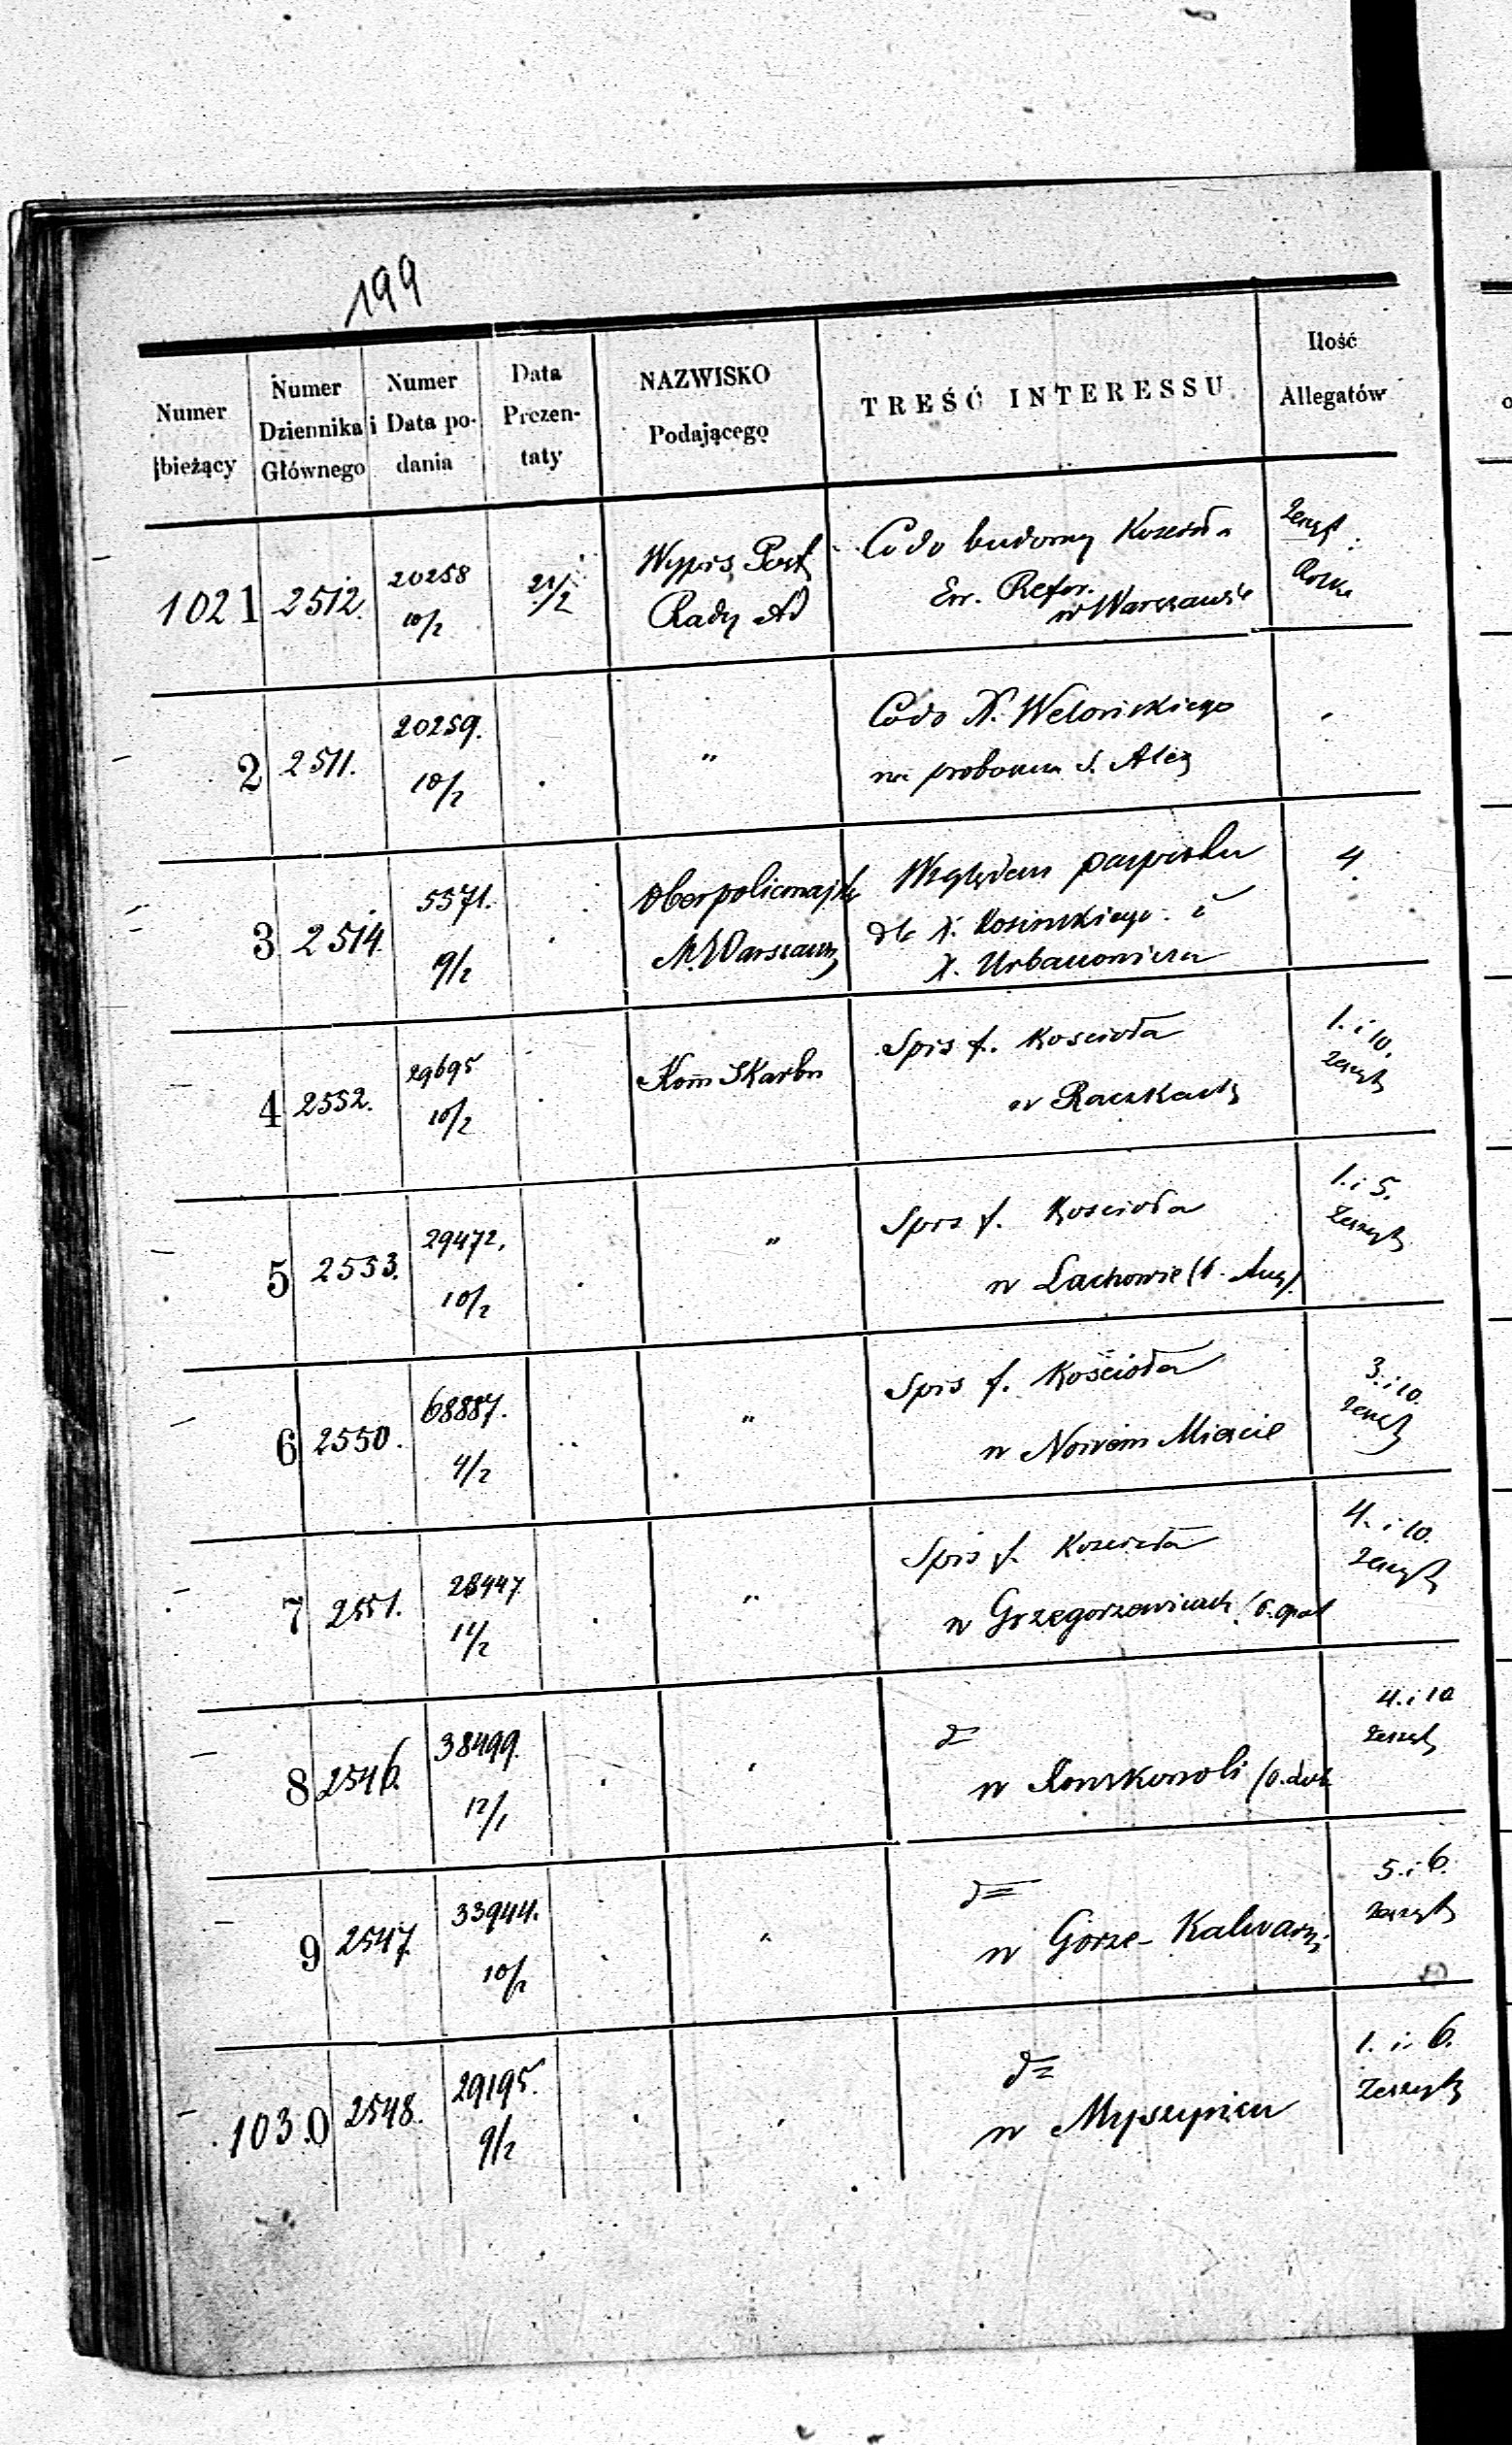 199
Numer bieżący
Numer Dziennika Głównego
Numer i Data podania
Data Prezentaty
NAZWISKO Podającego
TREŚĆ INTERESSU
Ilość Allegatów
1021 2512. 20258 10/2 21/2 Wypis Rady Ad Co do budowy Kościoła Ew. Refor. w Warszawie
2 2511. 20259. 10/2 " Co do X. na S. Alex
3 2514. 5571. 9/2 Oberpolicmajster M. Warszawy Względem paszportu dla X. i X. Urbanowicza 4.
4 2552. 29695 10/2 Kom Skarbu Spis f. Kościoła w Raczkach 1. i 10. zeszyty
5 2553. 29472. 10/2 " Spis f. Kościoła w Lachowie (G. Aug). 1. i 5. Zeszyty
6 2550. 68887. 4/2 " Spis f. Kościoła w Nowem Mieście 3. i 10. zeszyty
7 2551. 28447 11/2 " Spis f. Kościoła w Grzegorzewicach 4. i 10. zeszyty
8 2546. 38499. 12/1 d= w Końskowoli (G. Lub 4. i 10 zeszyty
9 2547. 33944. 10/2 " d= w Gorze-Kalwaryi 5. i 6. zeszyty
1030 2548. 29195. 9/2 d= w Myszyńcu 1. i 6. Zeszyty